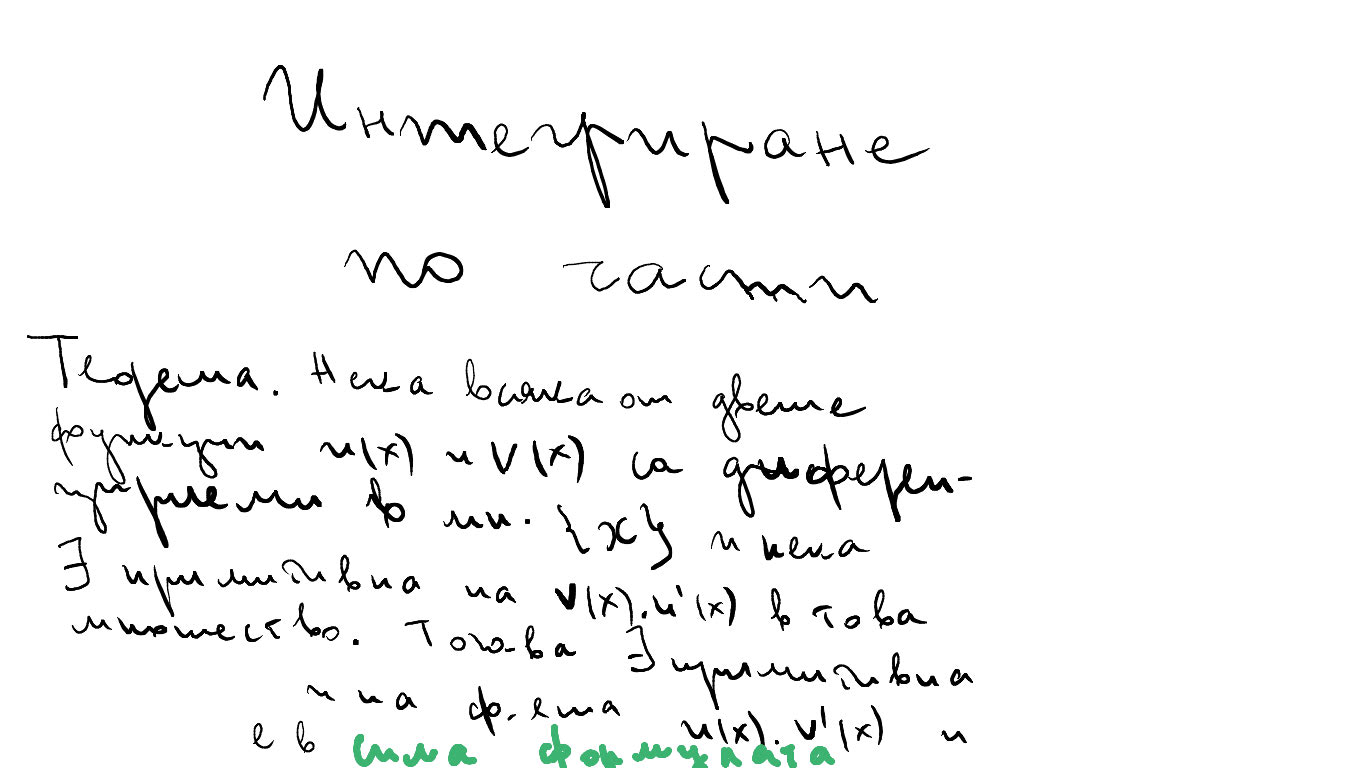 Интегриране
по части
Теорема. Нека всяка от двете
функции u(x) и v(x) са диферен-
цируеми в мн. {x} и нека
∃ примитивна на v(x).u'(x) в това
множество. Тогава ∃ примитивна
и на ф-ята u(x).v'(x) и
е в сила формулата